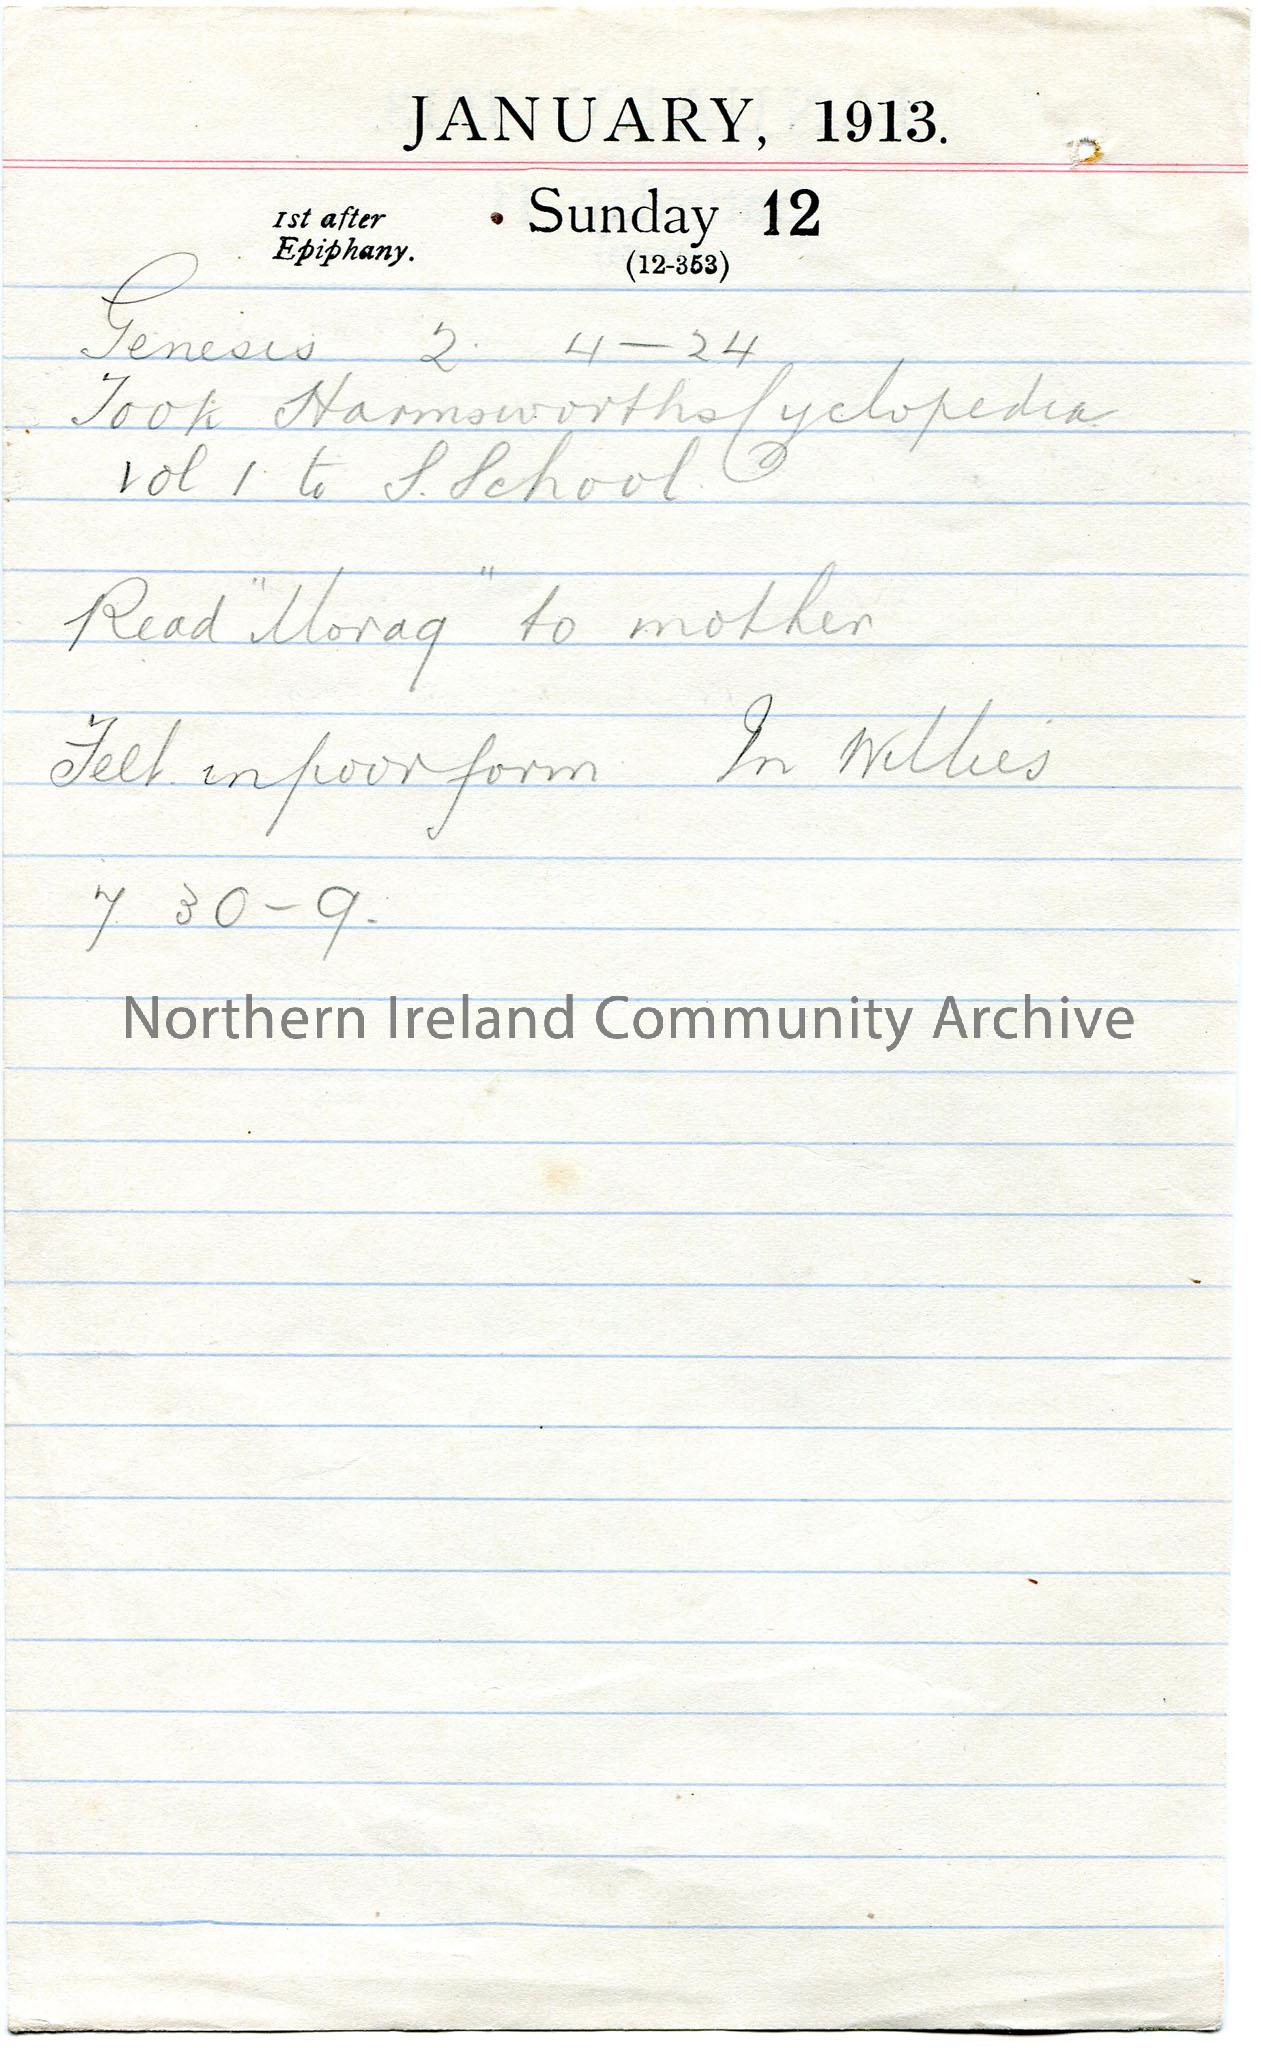 JANUARY, 1913.
1st after
Epiphany.
Sunday 12
(12-353)
Genesis 2. 4-24
Took Harmsworths Cyclopedia
vol 1 to S. School.
Read "Morag" to mother
Felt in poor form In Willies
7 30-9.
Northern Ireland Community Archive